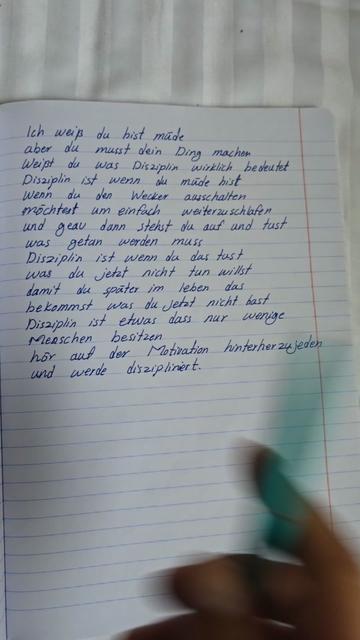 Ich weiß du bist müde
aber du musst dein Ding machen
Weißt du was Disziplin wirklich bedeutet
Disziplin ist wenn du müde bist
wenn du den Wecker ausschalten
möchtest um einfach weiterzuschlafen
und geau dann stehst du auf und tust
was getan werden muss
Disziplin ist wenn du das tust
was du jetzt nicht tun willst
damit du später im leben das
bekommst was du jetzt nicht hast
Disziplin ist etwas dass nur wenige
Menschen besitzen
hör auf der Motivation hinterherzujeden
und werde diszipliniert.